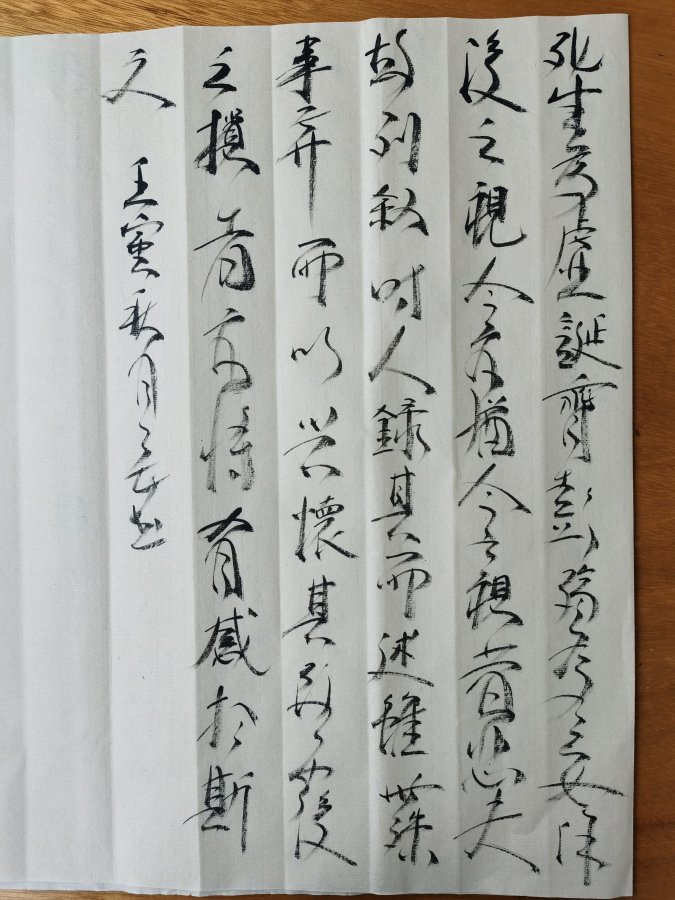 死生為虛誕齊彭殤為妄作
後之視今亦猶今之視昔悲夫
故列敘時人錄其所述雖世殊
事異所以興懷其致一也後
之攬者亦將有感於斯
文 壬寅秋月書